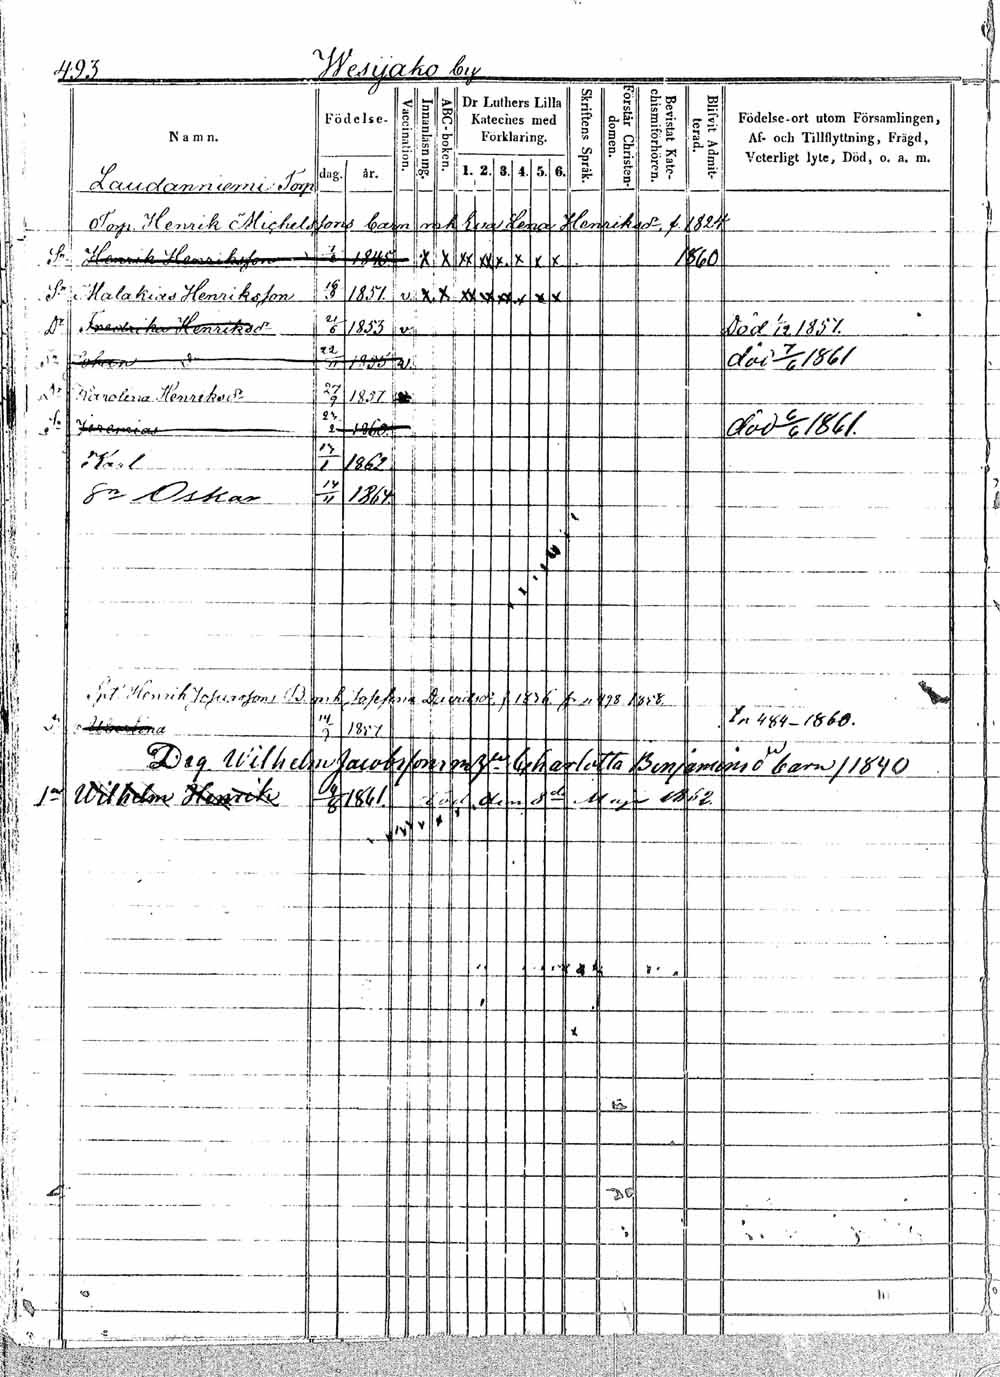 493 Wesijako by
Namn.
Födelse-
dag. år.
Vaccination.
Innanläsning.
ABC-boken.
Dr Luthers Lilla Kateches med Förklaring.
1. 2. 3. 4. 5. 6.
Skriftens Språk.
Förstår Christendomen.
Bevistat Katechismiförhören.
Blifvit Admitterad.
Födelse-ort utom Församlingen, Af- och Tillflyttning, Frägd, Veterligt lyte, Död, o. a. m.
Laudanniemi Torp
Torp. Henrik Michelssons barn m h Eva Lena Henriksdr f. 1824
Sn Henrik Henriksson 1845 x x xx xx x x x x 1860
Sn Malakias Henriksson 1851 v x x xx xx xx x x x
Dr Fredrika Henriksdr 21/6 1853 v Död 1/12 1857.
Johan 22/11 1855 v. död 7/6 1861
Karolina Henriksdr 27/9 1857
Sn Jeremias 1860 död 6/6 1861.
Karl 1862
Sn Oskar 14/11 1864
Henrik m h Josefina Davidsdr f 1836 fr n 498 1858.
Albertina 14/7 1857 Fn 484-1860.
Drg Wilhelm Jacobssons m 3je h Charlotta Benjaminsdr barn f 1840
1n Wilhelm Henrik 1861. död den 8de Maji 1862.